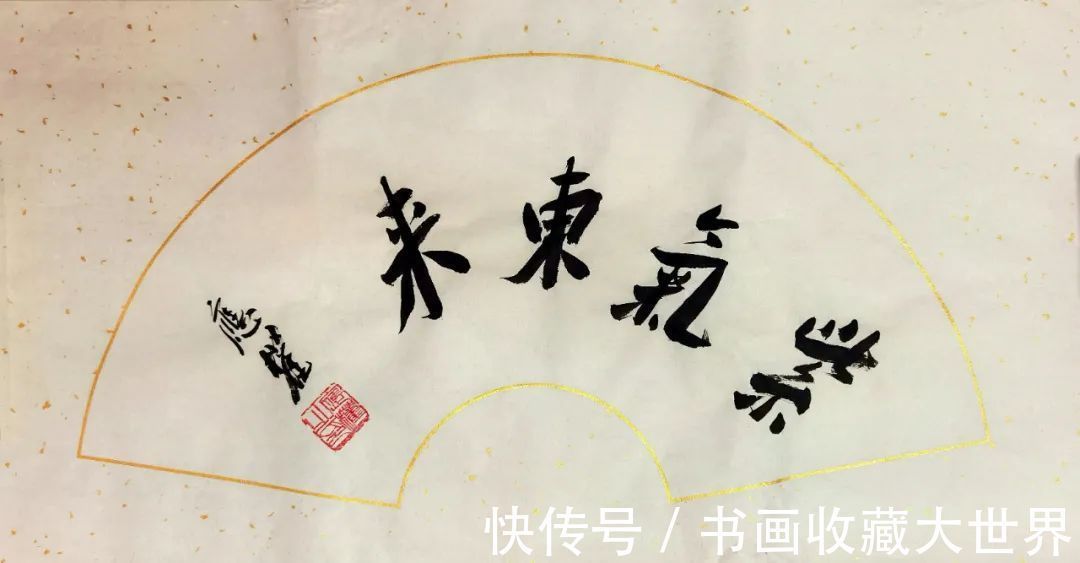 紫氣東来
應
快传号 / 书画收藏大世界